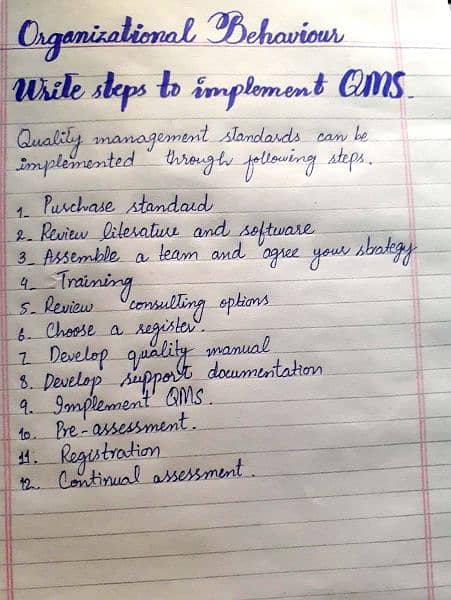 Organizational Behaviour
Write steps to implement QMS.
Quality management standards can be
implemented through following steps.
1- Purchase standard
2- Review literature and software
3- Assemble a team and agree your strategy
4- Training
5- Review consulting options
6- Choose a register.
7. Develop quality manual
8. Develop support documentation
9. Implement QMS.
10. Pre-assessment.
11. Registration
12. Continual assessment.